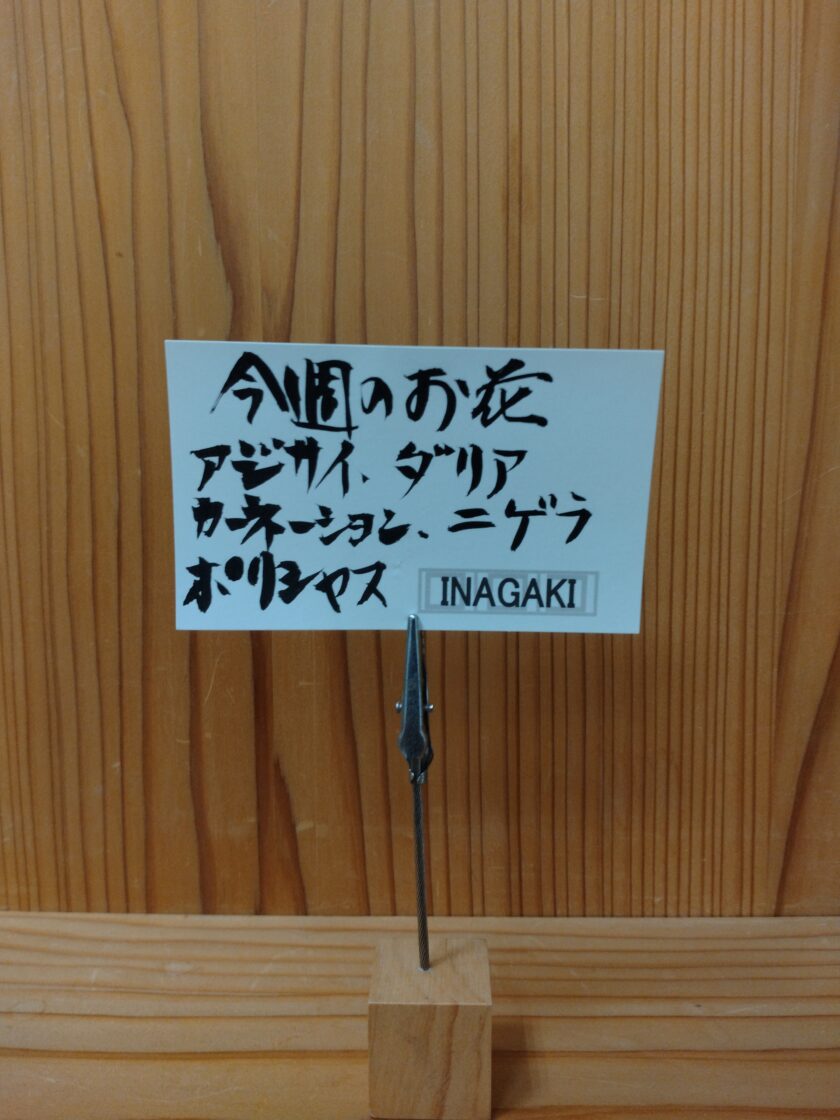 今週のお花
アジサイ、ダリア
カーネーション、ニゲラ
ポリシャス
INAGAKI